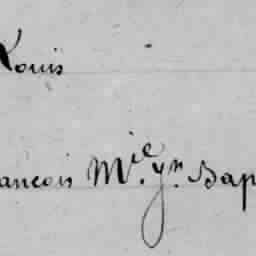 Louis
ancois M.ie yn. Bap